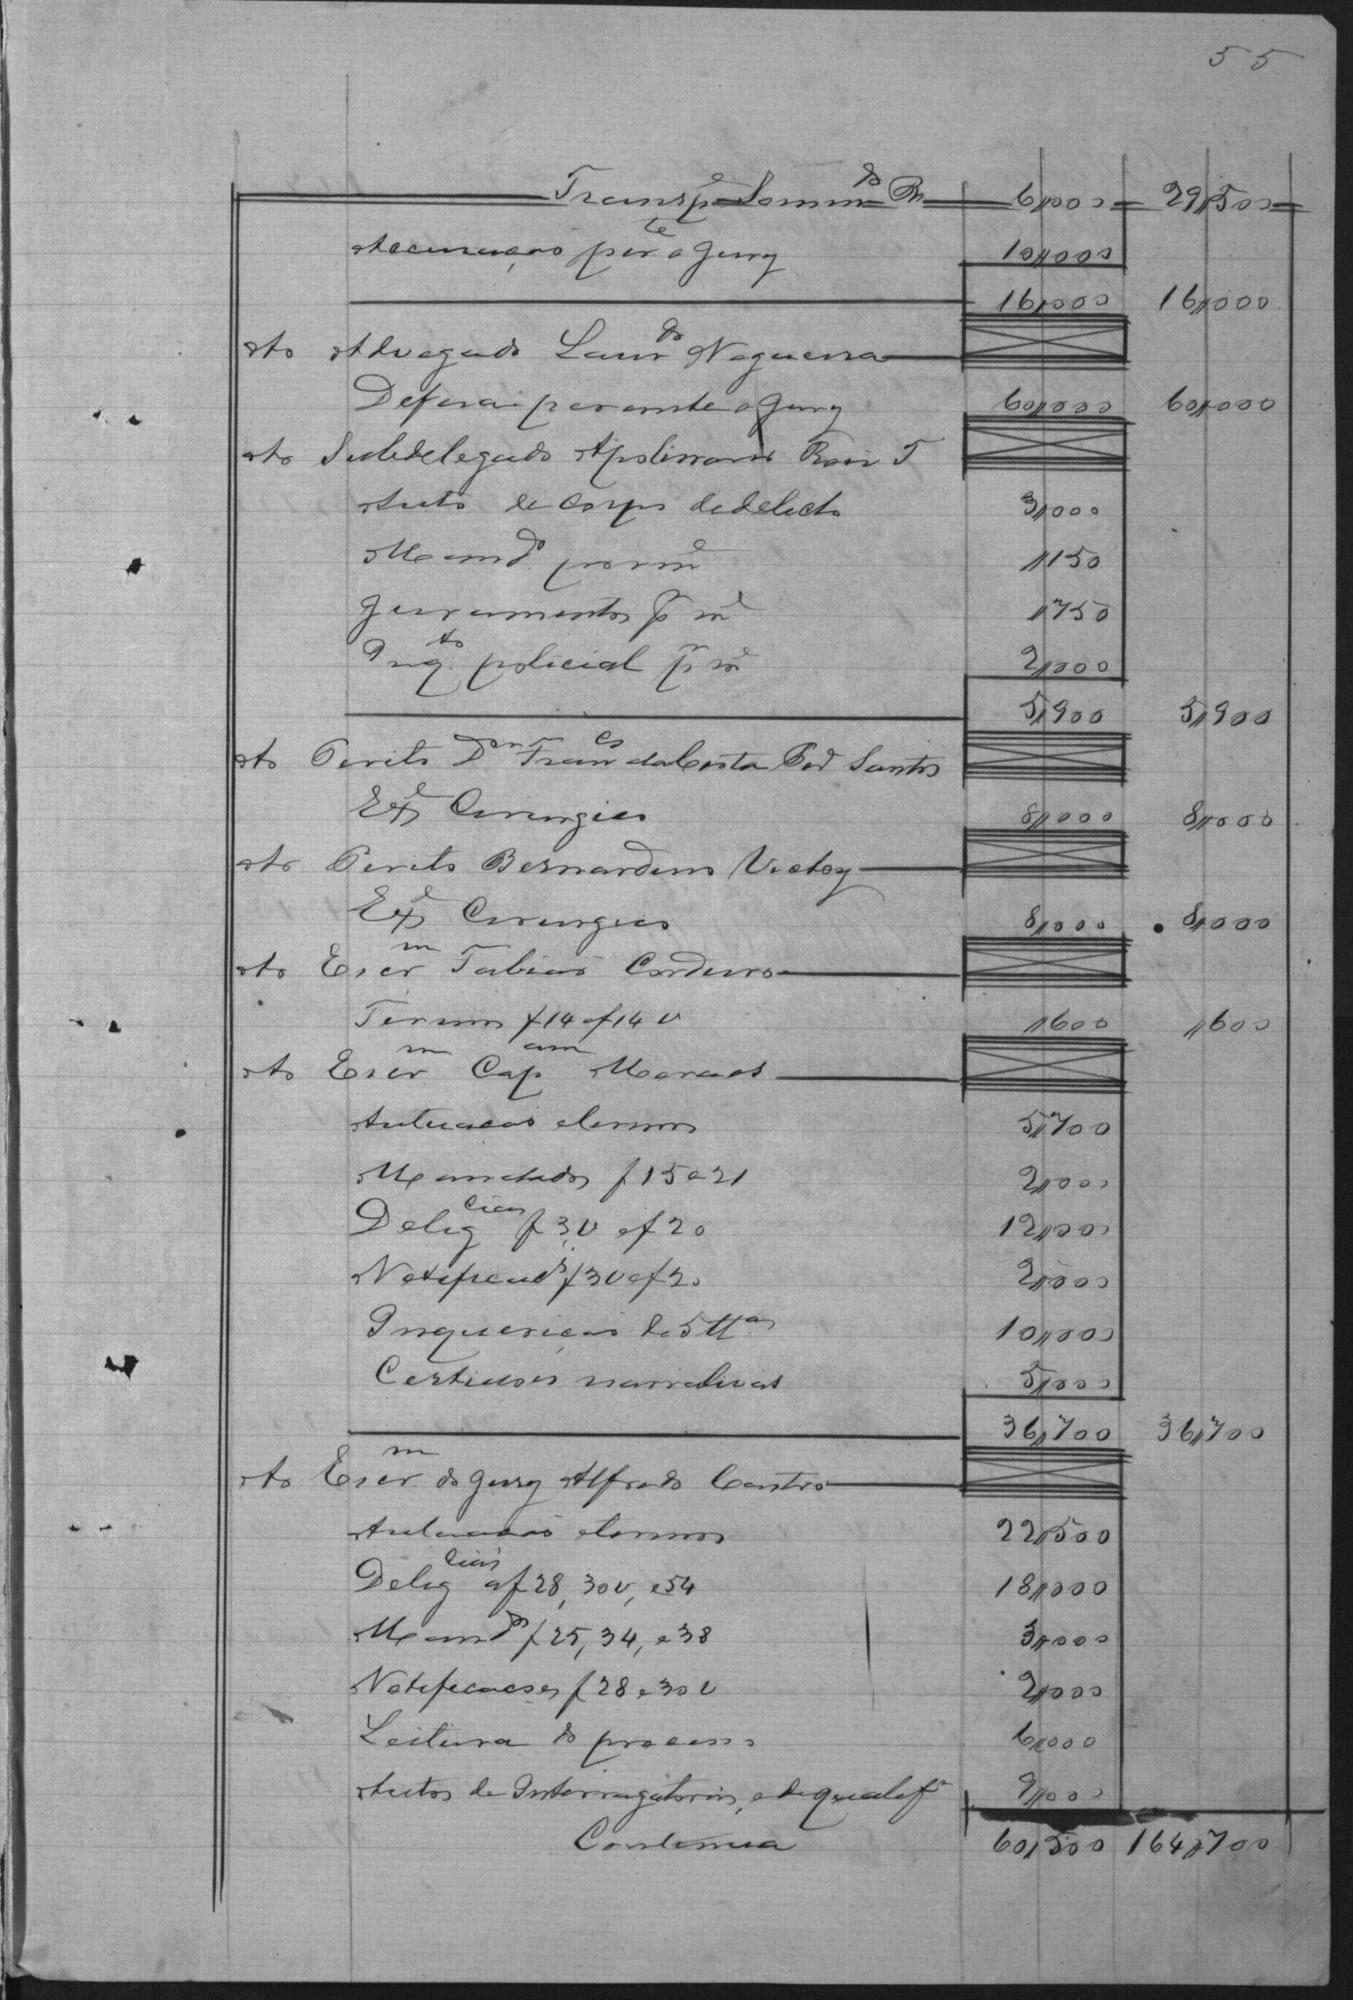 55
Transpe Somm do Rs 6,,000 29,,500
Accusação perte o Jury 10,,000
16,,000 16,,000
Ao Advogado Laurdo Nogueira
Defesa perante o Jury 60,,000 60,,000
Ao Subdelegado Apolinario
Auto de corpo de delicto 3,,000
Mando por md ,,150
Juramentos pr md ,,750
Inqto policial pr md 2,,000
5,,900 5,,900
Ao Perito Dor Franco da Costa Santos
Exe Cirurgico 8,,000 8,,000
Ao Perito Bernardino Victoy
Exe Cirurgico 8,,000 8,,000
Ao Escrm Tobias Cordeiro
Termos f 14 e f 14 v ,,600 ,,600
Ao Escrm Capam Marcos
Autuacão e termos 5,,700
Mandados f 15 e 21 2,,000
Deligcias f 3,v e f 20 12,,000
Notificads f 3 v e f 20 2,,000
Inquerição de 5 ttas 10,,000
Certidoes narrativas 5,,000
36,,700 36,,700
Ao Escrm do Jury Alfredo Castro
Autuacão e termos 22,,500
Deligcias a f 28, 30v, e 54 18,,000
Mandos f 25, 34, e 38 3,,000
Notificacoes f 28 e 30 v 2,,000
Leitura do processo 6,,000
Autos de Interrogatorios, e de qualifm 9,,000
Continua 60,,500 164,,700